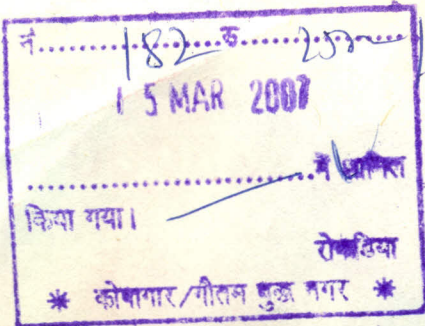 नं. 182 रु.
15 MAR 2007
में शामिल
किया गया।
रोकड़िया
* कोषागार/गौतम बुद्ध नगर *